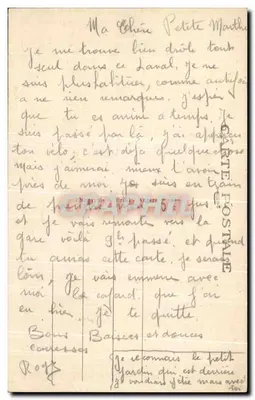 Ma Chère Petite Marthe
je me trouve bien drôle tout
seul dans ce Laval, je ne
suis plus habituer, comme autrefois
a ne rien remarquer. j'esper
que tu es arrivé a temps. Je
suis passé par là, j'ai apperçu
ton vélo, c'est déjà quelque chose
mais j'aimerai mieux t'avoir
près de moi. Je suis en train
de
et je vais remonté vers la
gare voilà 9h passé, et quand
tu auras cette carte, je serai
loin, Je vais emmené avec
moi le cafard, que j'ai
eu hier. je te quitte
Bons Baisers et douces
caresses
je reconnais le petit
jardin qui est derrière
je voudrais y être mais avec toi
CARTE POSTALE
CPAPHIL